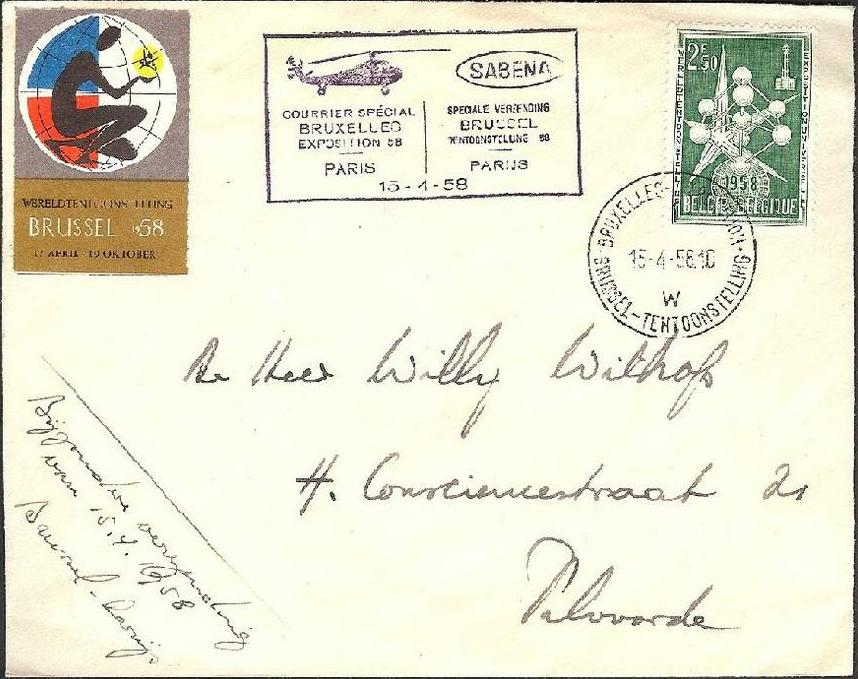 WERELDTENTOONSTELLING
BRUSSEL 1958
17 APRIL - 19 OKTOBER
SABENA
COURRIER SPÉCIAL
BRUXELLES
EXPOSITION 58
PARIS
SPECIALE VERZENDING
BRUSSEL
TENTOONSTELLING 58
PARIJS
15-4-58
2F50
WERELDTENTOONSTELLING
EXPOSITION UNIVERSELLE
1958
BELGIE-BELGIQUE
BRUXELLES-EXPOSITION
15-4-58.10
W
BRUSSEL-TENTOONSTELLING
De Heer Willy Wilhof
H. Consciencestraat 21
Vilvoorde
Bijzondere verzending
van 15.4.1958
Brussel-Parijs